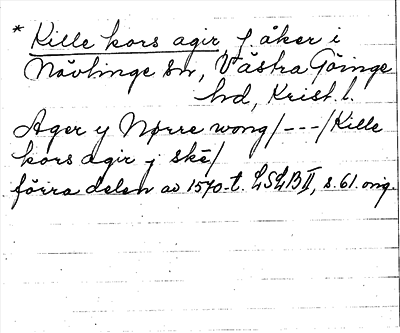 * Kille kors agir f. åker i
Nävlinge sn, Västra Göinge
hd, Krist. l.
Ager y Nørre wong/---/Kille
kors agir j skē/
förra delen av 1570-t. LSLB II, s. 61. orig.